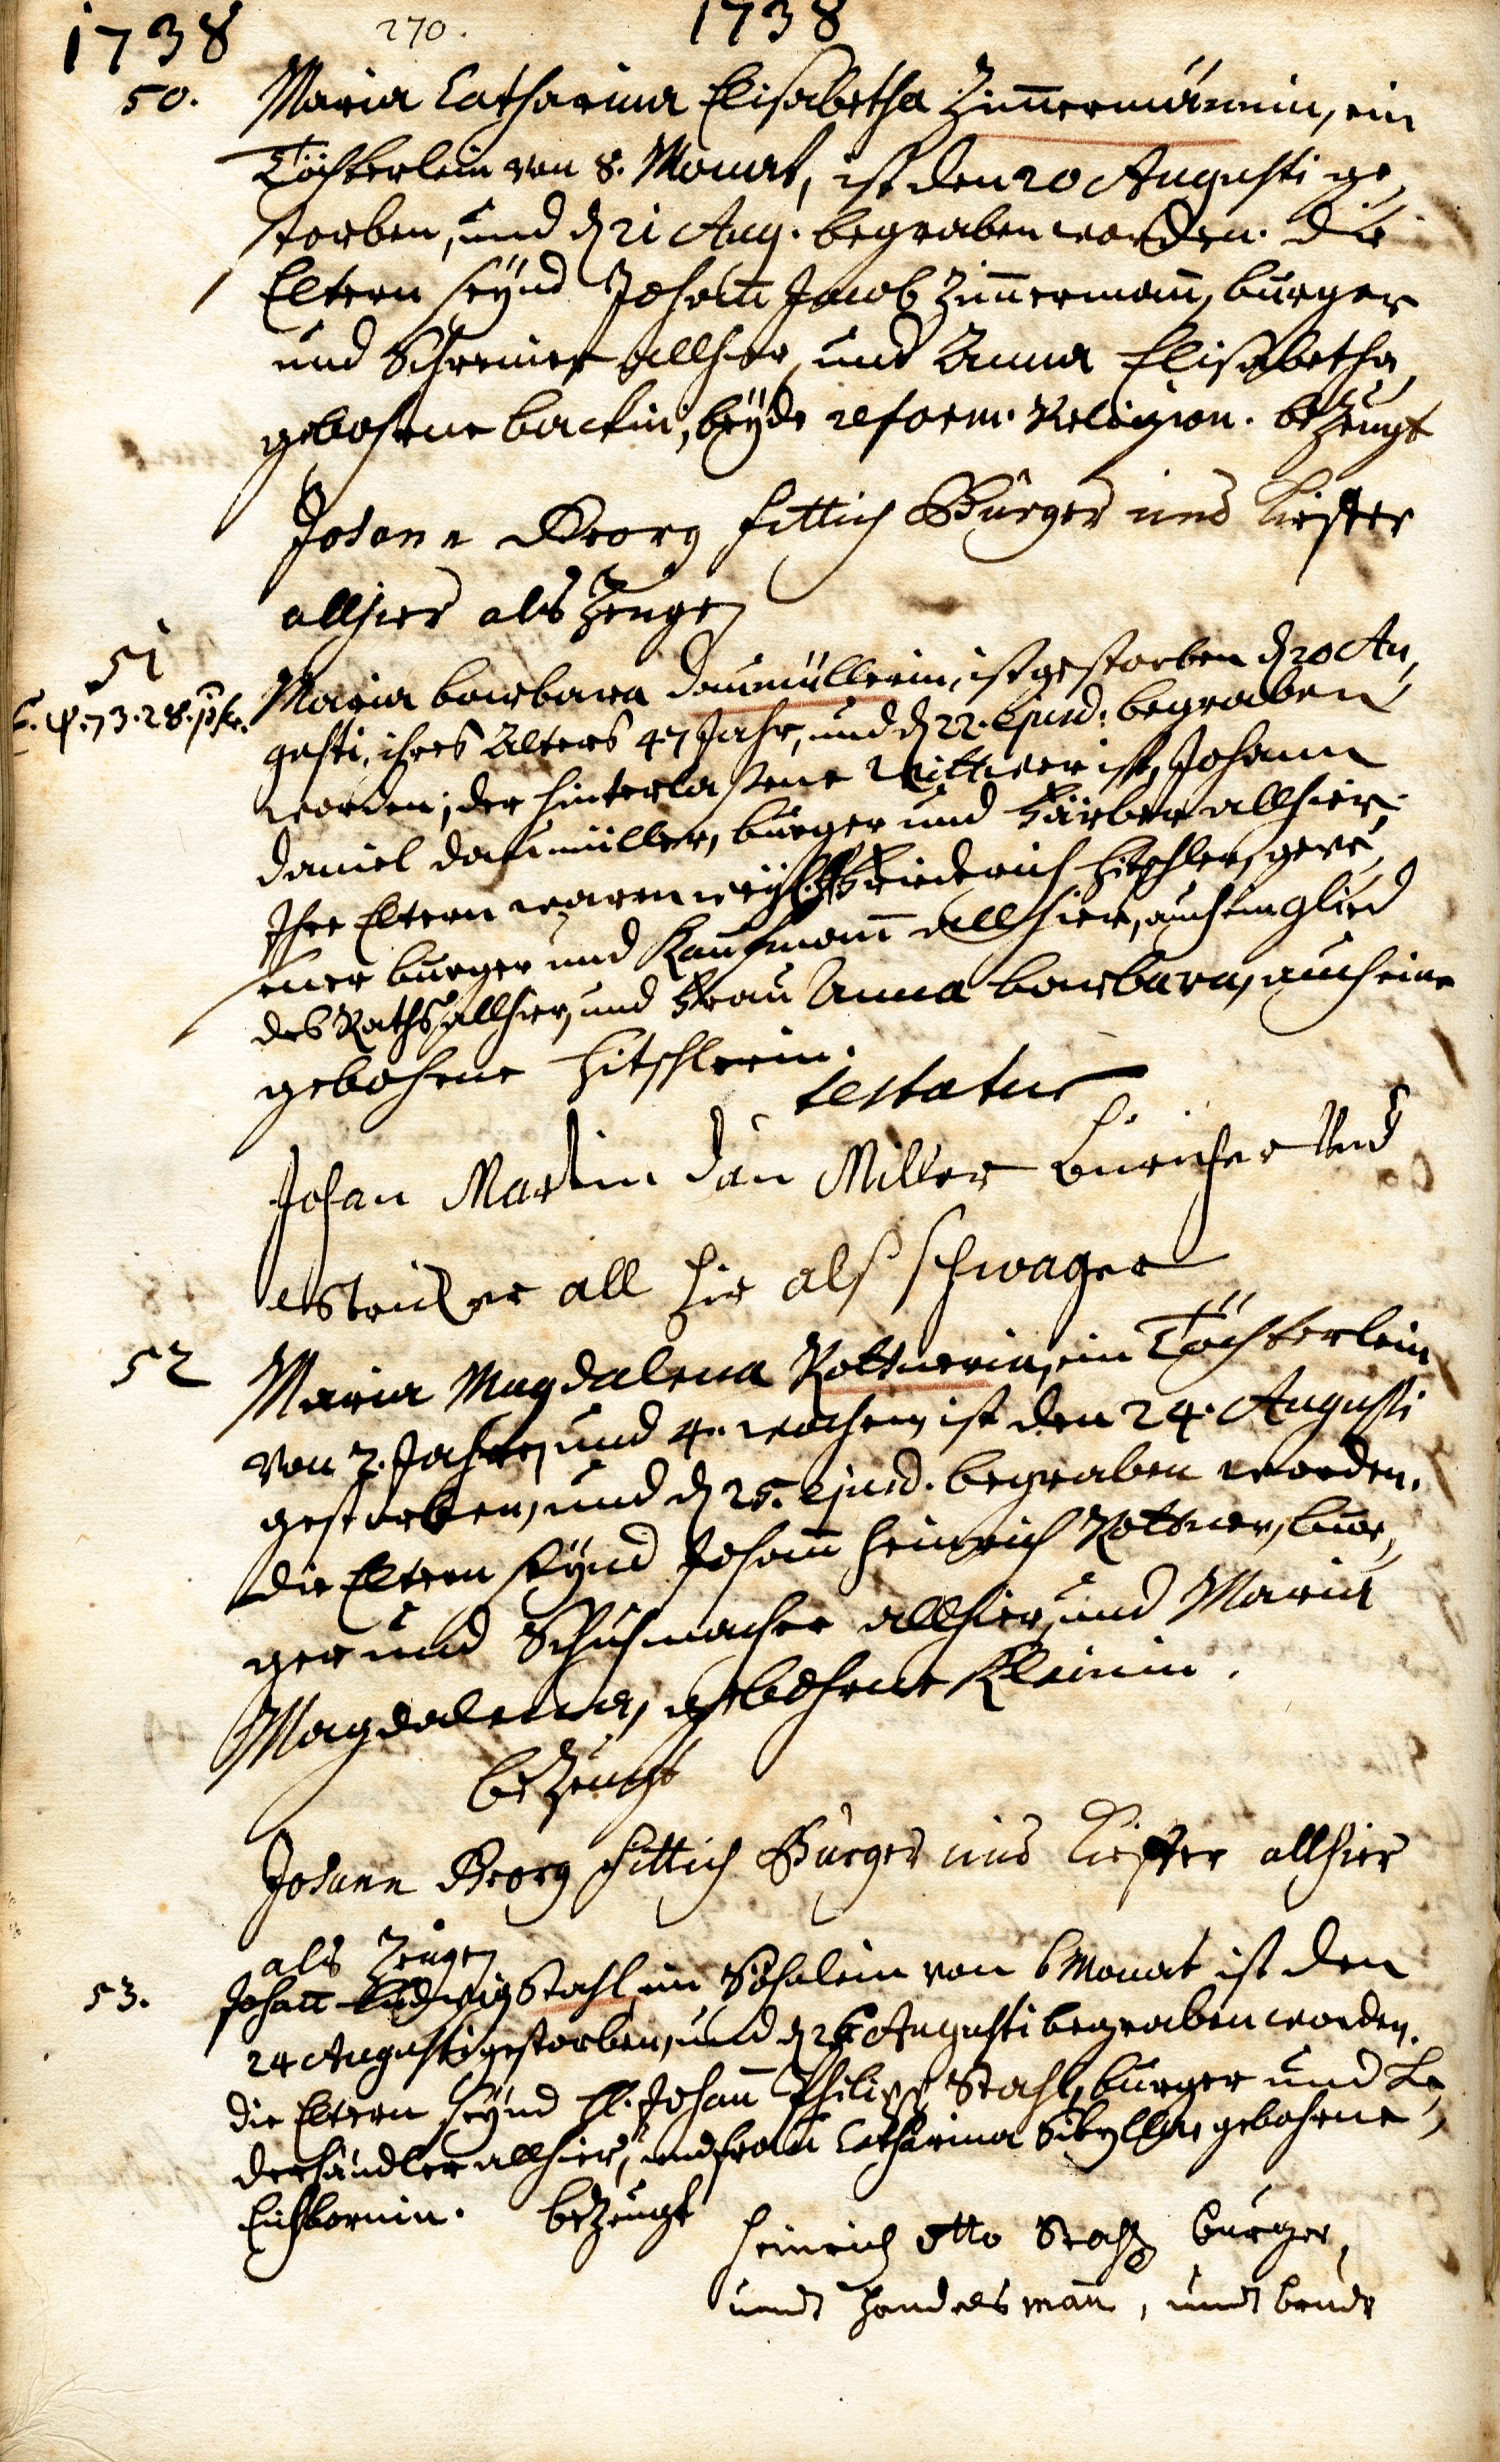 1738 270. 1738
50. Maria Catharina Elisabetha Zim̅ermännin, ein
Töchterlein von 8. Monat, ist den 20 Augusti ge,
storben, und d. 21 Aug. begraben worden. die
Eltern seÿnd Johan̅ Jacob Zim̅erman̅, burger
und Schreiner allhier, und Anna Elisabetha,
gebohrne backin, beÿde reform. Religion. bezeugt
Johann Georg Hittich Bürger und Kiefter
allhier als Zeugen
51 Maria barbara Daumüllerin, ist gestorben d. 20 Au,
gusti, ihres Alters 47 Jahr, und d. 22. ejusd. begraben
worden; der hinterlassene Wittwer ist, Johann
Daniel Daumüller, burger und Färber allhier;
Ihre Eltern waren weÿl. Friederich Hitschler, gewe,
sener burger und Kaufman̅ allhier, auch ein glied
des Raths allhier, und Frau Anna barbara, auch eine
gebohrne Hitschlerin.
testatur
Johan Martin Dau Miller buricher Und
Stricker all hir alß schwager
52 Maria Magdalena Rottnerin, ein Töchterlein
von 2. Jahren und 4. wochen, ist den 24. Augusti
gestorben, und d. 25. ejusd. begraben worden.
die Eltern seÿnd Johan̅ Heinrich Rottner, bur,
ger und Schuhmacher allhier, und Maria
Magdalena, gebohrne Kleinin.
bezeugt
Johann Georg Hittich Bürger und Kiefter allhier
als Zeugen
53. Johan̅ Ludwig Stahl, ein Söhnlein von 6 Monat ist den
24 Augusti gestorben, und d. 26 Augusti begraben worden.
die Eltern seÿnd H. Johan̅ Philipp Stahl, burger und Le,
derhändler allhier, und frau Catharina Sibylla, gebohrne
Eichbornin. bezeugt
Heinrich Otto Stahl burger,
undt Handelsman̅, undt bruder